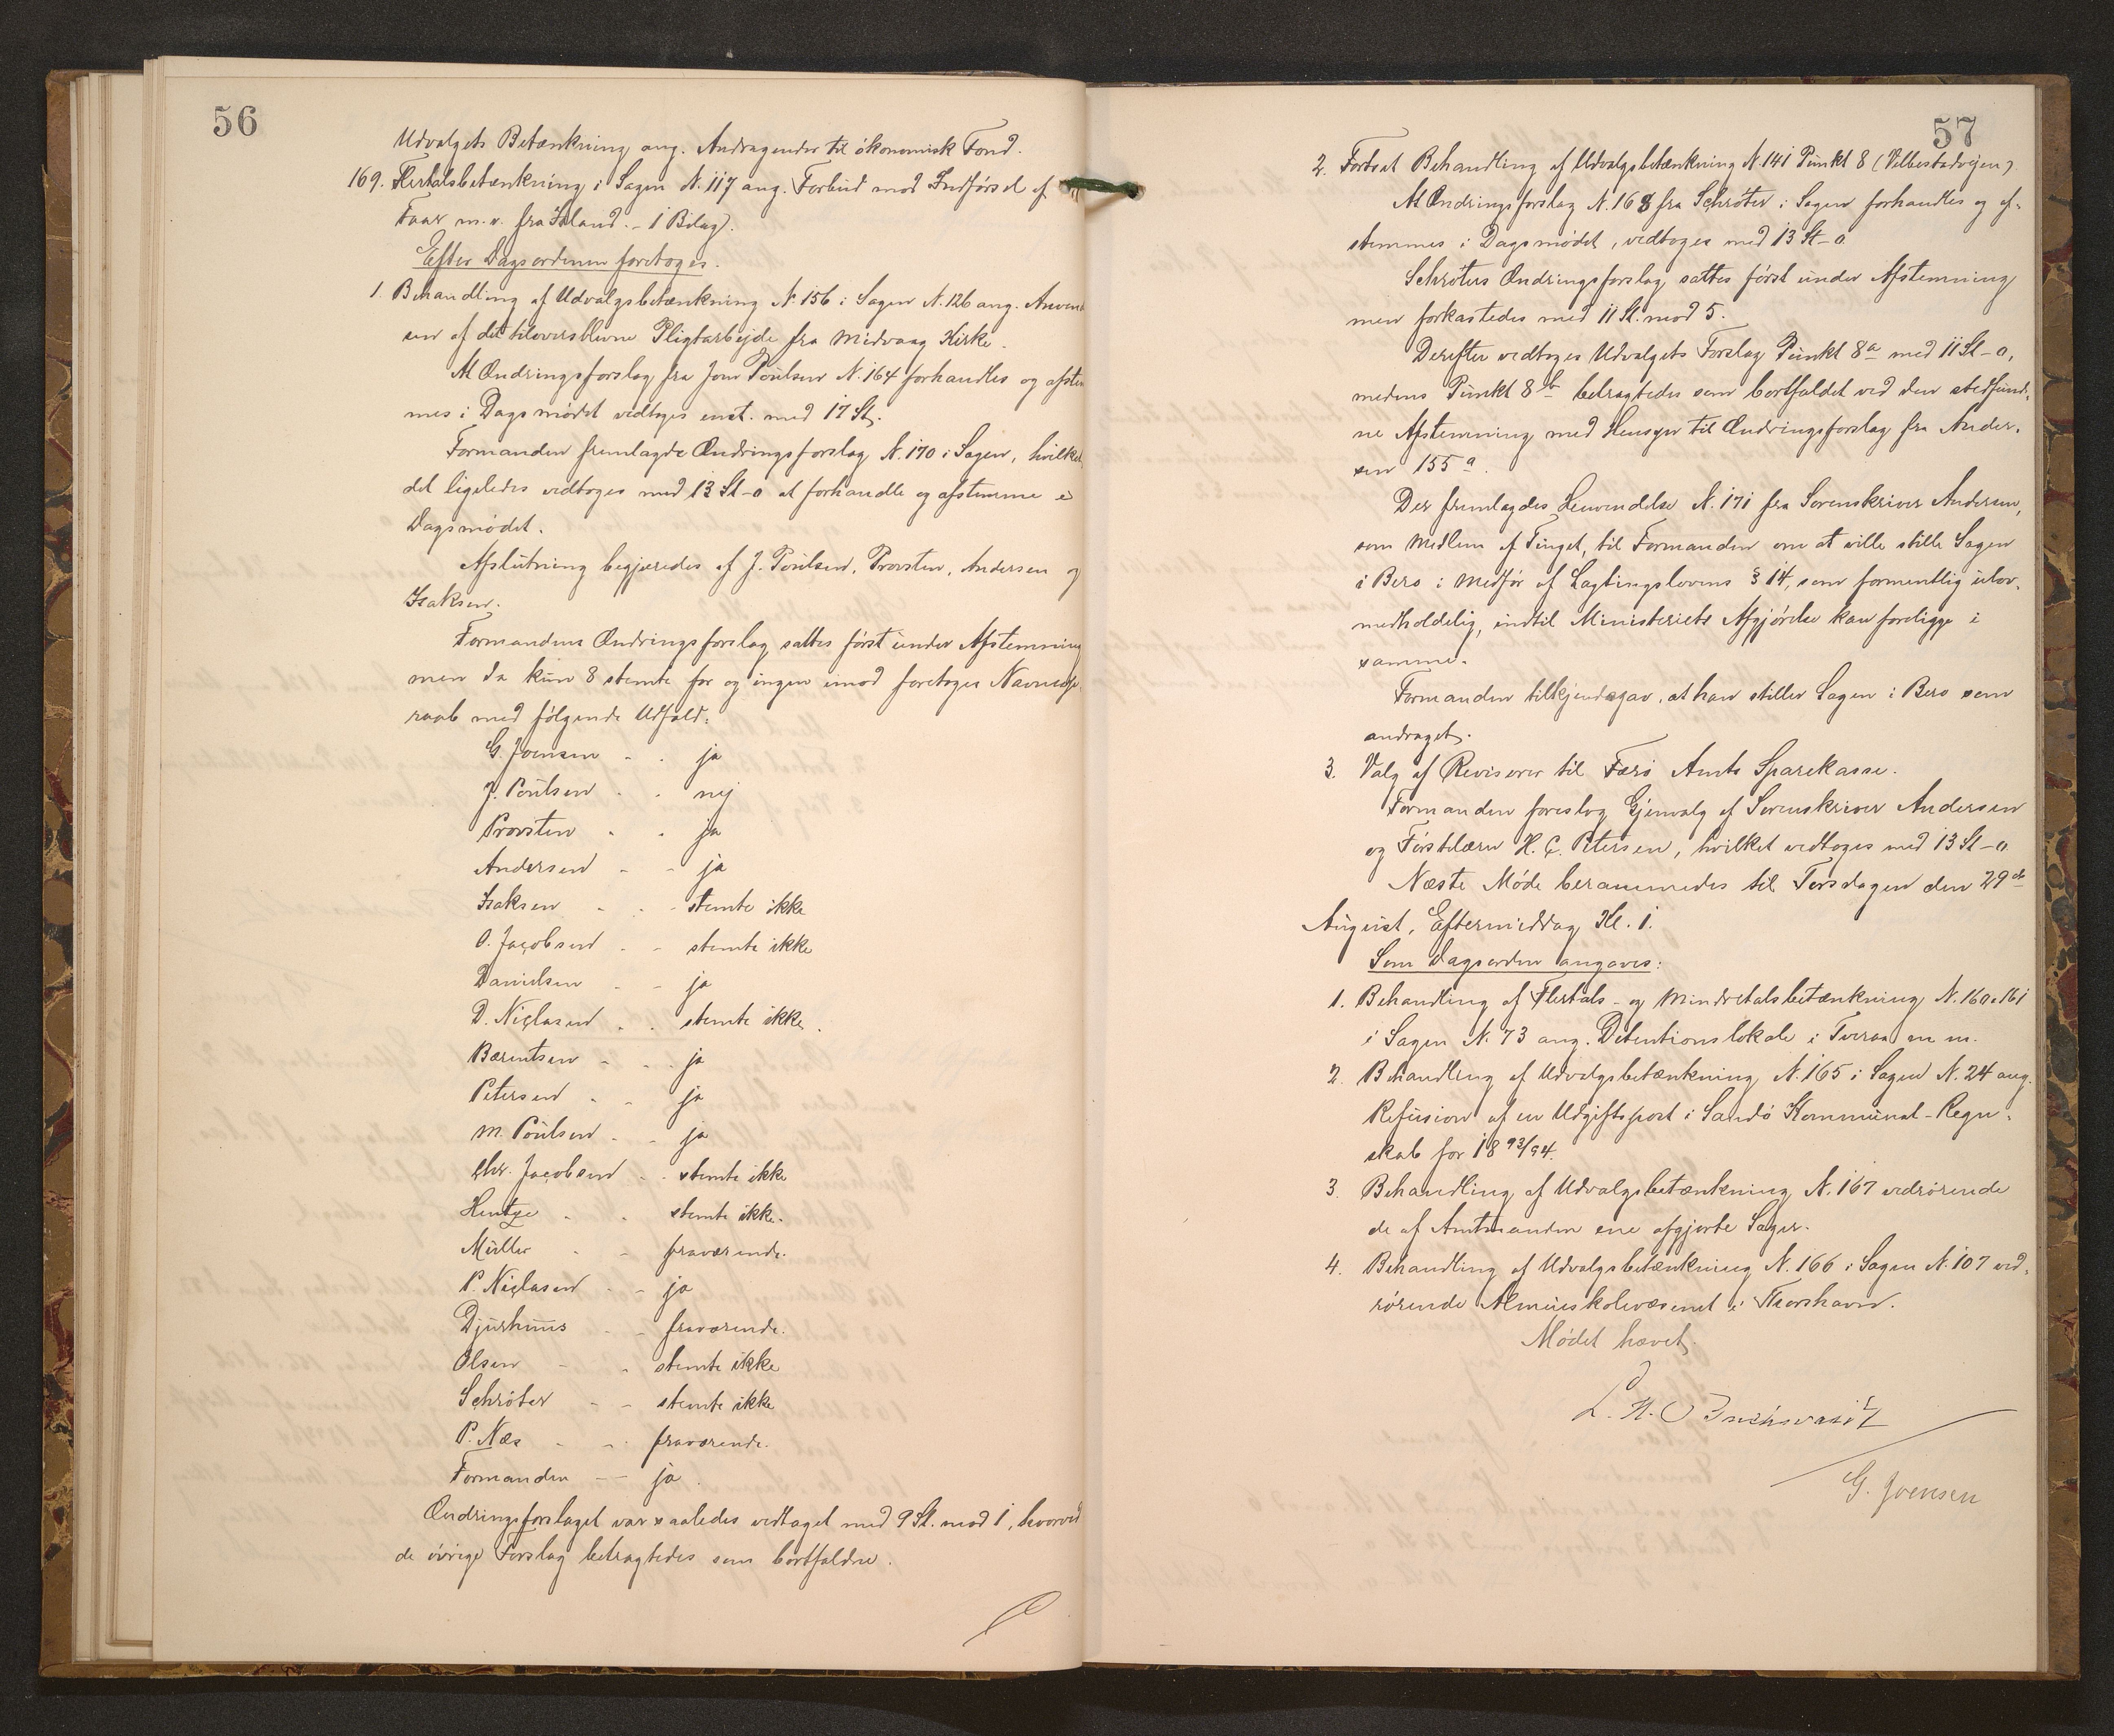 56
Udvalgets Betænkning ang. Andragender til økonomisk Fond.
169. Flertalsbetænkning i Sagen N. 117 ang. Forbud mod Indførsel af
Faar m.v. fra Island. - 1 Bilag.
Efter Dagsordenen foretoges.
1. Behandling af Udvalgsbetænkning N. 156 i Sagen N. 126 ang. Anven
sen af det tiloversblevne Pligtarbejde fra Midvaag Kirke.
At Ændringsforslag fra Joen Poulsen N. 164 forhandles og afstem
mes i Dagsmødet vedtoges enst. med 17 St.
Formanden fremlagde Ændringsforslag N. 170 i Sagen, hvilket
det ligeledes vedtoges med 13 St-0 at forhandle og afstemme i
Dagsmødet.
Afslutning begjæredes af J. Poulsen, Provsten, Andersen og
Isaksen.
Formandens Ændringsforslag sattes først under Afstemning
men da kun 8 stemte for og ingen imod foretoges Navneop-
raab med følgende Udfald:
G. Joensen - - ja
J. Poulsen - - nej
Provsten - - ja
Andersen - - ja
Isaksen - - stemte ikke
O. Jacobsen - - stemte ikke
Danielsen - - ja
D. Niclasen - - stemte ikke.
Bærentsen - - ja
Petersen - - ja
M. Poulsen - - ja
Chr. Jacobsen - - stemte ikke
Hentze - - stemte ikke.
Müller - - fraværende.
P. Niclasen - - ja
Djurhuus - - fraværende.
Olsen - - stemte ikke
Schrøter - - stemte ikke
P. Næs - - fraværende.
Formanden - - ja.
Ændringsforslaget var saaledes vedtaget med 9 St. mod 1, hvorved
de øvrige Forslag betragtedes som bortfaldne.
57
2. Fortsat Behandling af Udvalgsbetænkning N. 141 Punkt 8 (Velbestadvejen).
At Ændringsforslag N. 168 fra Schrøter i Sagen forhandles og af-
stemmes i Dagsmødet, vedtoges med 13 St-0.
Schrøters Ændringsforslag sattes først under Afstemning
men forkastedes med 11 St. mod 5.
Derefter vedtoges Udvalgets Forslag Punkt 8a med 11 St-0,
medens Punkt 8b betragtedes som bortfaldet ved den stedfund-
ne Afstemning med Hensyn til Ændringsforslag fra Ander-
sen 155a.
Der fremlagdes Henvendelse N. 171 fra Sorenskriver Andersen,
som Medlem af Tinget, til Formanden om at ville stille Sagen
i Bero i Medfør af Lagtingslovens § 14, som formentlig ulov-
medholdelig, indtil Ministeriets Afgjørelse kan foreligge i
samme.
Formanden tilkjendegav, at han stiller Sagen i Bero som
andraget.
3. Valg af Revisorer til Færø Amts Sparekasse.
Formanden foreslog Gjenvalg af Sorenskriver Andersen
og Førstelærer H. C. Petersen, hvilket vedtoges med 13 St-0
Næste Møde berammedes til Torsdagen den 29de
August, Eftermiddag Kl. 1.
Som Dagsorden angaves:
1. Behandling af Flertals- og Mindretalsbetænkning N. 160 & 161
i Sagen N. 73 ang. Detentionslokale i Tveraa m m.
2. Behandling af Udvalgsbetænkning N. 165 i Sagen N. 24 ang.
Refusion af en Udgiftspost i Sandø Kommunal-Regn-
skab for 1893/94.
3. Behandling af Udvalgsbetænkning N. 167 vedrørende
de af Amtmanden ene afgjorte Sager.
4. Behandling af Udvalgsbetænkning N. 166 i Sagen N. 107 ved-
rørende Almueskolevæsenet i Thorshavn.
Mødet hævet.
G. Joensen